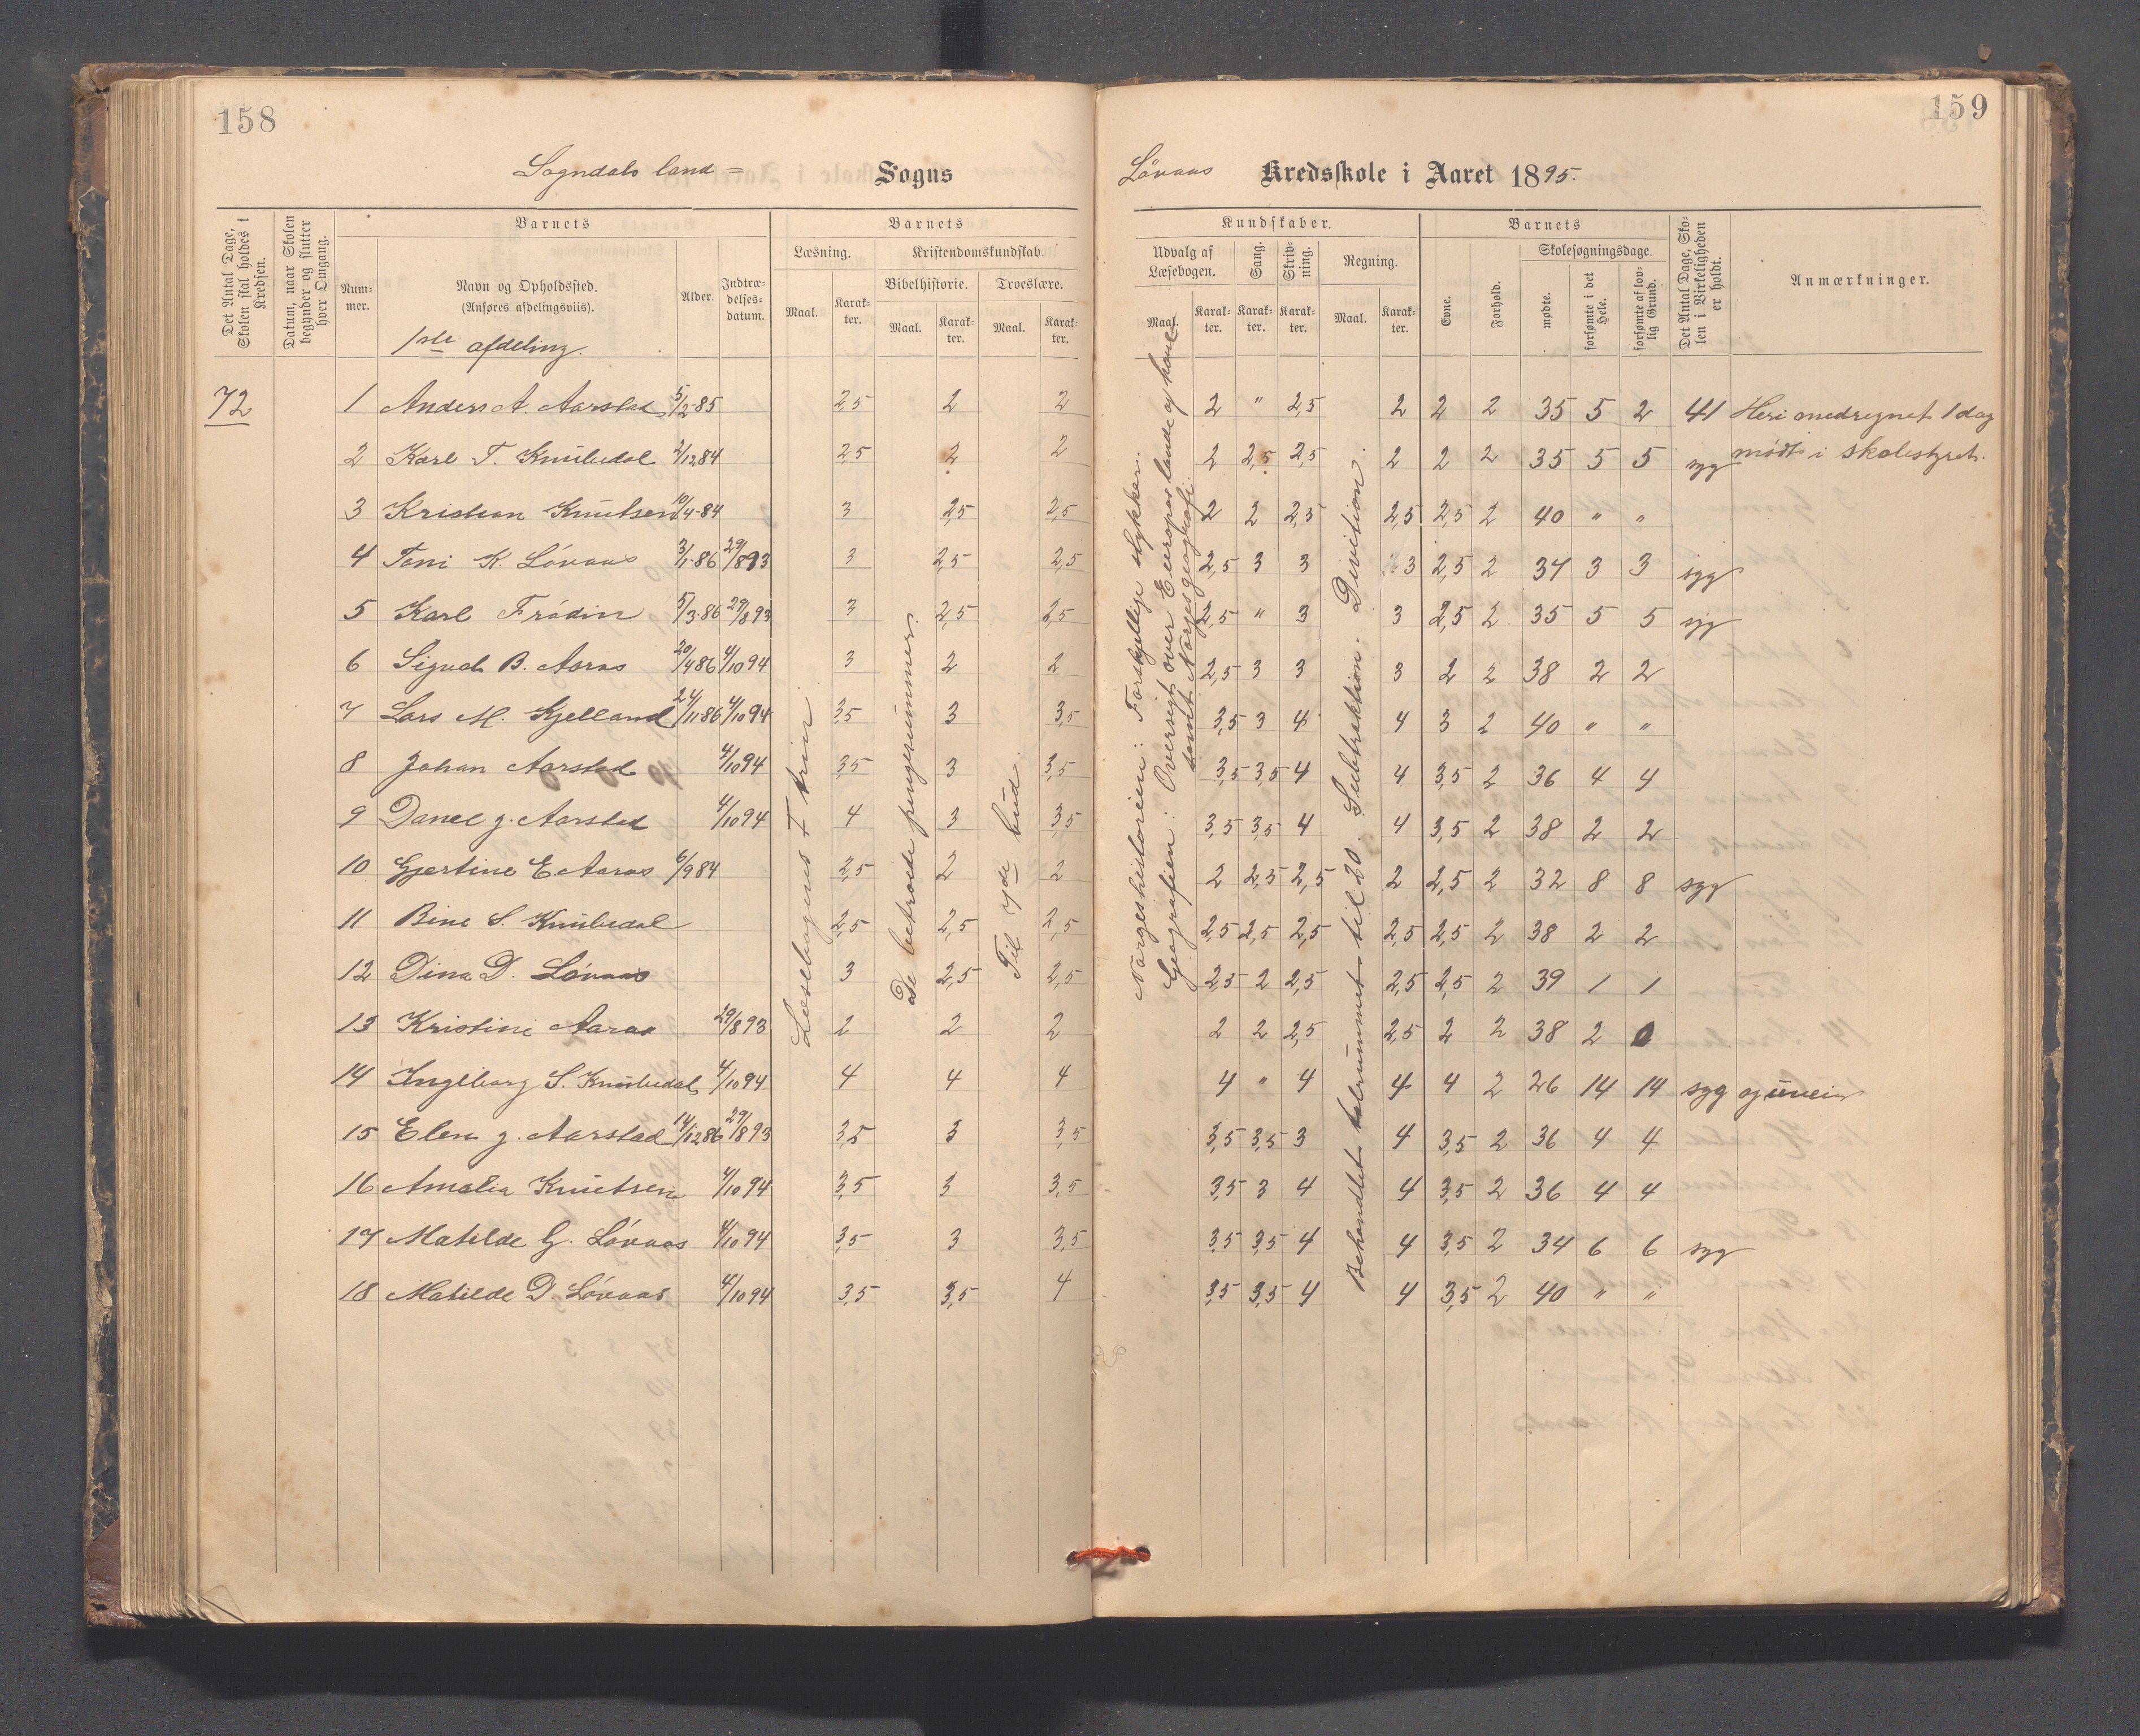 158
Sogndals land= Sogns
Det Antal Dage, Skolen skal holdes i Kredsen.
Datum, naar Skolen begynder og slutter hver Omgang.
Barnets
Num-mer.
Navn og Opholdssted.
(Anføres afdelingsviis).
Alder.
Indtræ-delses-datum.
Barnets
Læsning.
Maal.
Karak-ter.
Kristendomskundskab.
Bibelhistorie.
Maal.
Karak-ter.
Troeslære.
Maal.
Karak-ter.
1ste afdeling.
72
1 Anders A. Aarstad 5/2-85 2,5 2 2
2 Karl T. Knubedal 2/12 84 2,5 2 2
3 Kristian Knutsen 10/4-84 3 2,5 2,5
4 Toni K. Lövaas 3/1-86 29/8 93 3 2,5 2,5
5 Karl Frödin 5/3-86 29/8 93 3 2,5 2,5
6 Sigvoh B. Aaras 20/4 86 4/10 94 3 2 2
7 Lars M. Kjelland 24/11-86 4/10 94 3,5 3 3,5
8 Johan Aarstad 4/10 94 3,5 3 3,5
9 Danel J. Aarstad 4/10 94 4 3 3,5
10 Gjertine E. Aaras 6/9 84 2,5 2 2
11 Bine S. Knubedal 2,5 2,5 2,5
12 Dina D. Lövaas 3 2,5 2,5
13 Kristine Aaras 29/8 93 2 2 2
14 Ingeborg S. Knubedal 4/10 94 4 4 4
15 Elen J. Aarstad 14/12 86 29/8 93 3,5 3 3,5
16 Amalia Knutsen 4/10 94 3,5 3 3,5
17 Matilde G. Lövaas 4/10 94 3,5 3 3,5
18 Matilde D. Lövaas 4/10 94 3,5 3,5 4
Læsebogens I trin
De betroede pengesummer.
Til 7de bud.
159
Lövaas Kredsskole i Aaret 1895.
Kundskaber.
Udvalg af Læsebogen.
Maal.
Karak-ter.
Sang.
Karak-ter.
Skriv-ning.
Karak-ter.
Regning.
Maal.
Karak-ter.
Barnets
Evne.
Forhold.
Skolesøgningsdage.
mødte.
forsømte i det Hele.
forsømte af lov-lig Grund.
Det Antal Dage, Sko-len i Virkeligheden er holdt.
Anmærkninger.
2 " 2,5 2 2 2 35 5 2 41 Heri medregnet 1 dag
2 2,5 2,5 2 2 2 35 5 5 syg mødt i skolestyret.
2 2 2,5 2,5 2,5 2 40 " "
2,5 3 3 3 2,5 2 37 3 3 syg
2,5 " 3 3 2,5 2 35 5 5 syg
2,5 3 3 3 2 2 38 2 2
3,5 3 4 4 3 2 40 " "
3,5 3,5 4 4 3,5 2 36 4 4
3,5 3,5 4 4 3,5 2 38 2 2
2 2,5 2,5 2 2,5 2 32 8 8 syg
2,5 2,5 2,5 2,5 2,5 2 38 2 2
2,5 2 2,5 2,5 2,5 2 39 1 1
2 2 2,5 2,5 2 2 38 2 0
4 " 4 4 4 2 26 14 14 syg og uveir
3,5 3,5 3 4 3,5 2 36 4 4
3,5 3 4 4 3,5 2 36 4 4
3,5 3,5 4 4 3,5 2 34 6 6 syg
3,5 3,5 4 4 3,5 2 40 " "
Norgeshistorien: Forskjellige stykker.
Geografien: Oversigt over Europas lande og have
samt Norges geografi.
Behandlet talrummet til 20. Subtraktion. Divition.